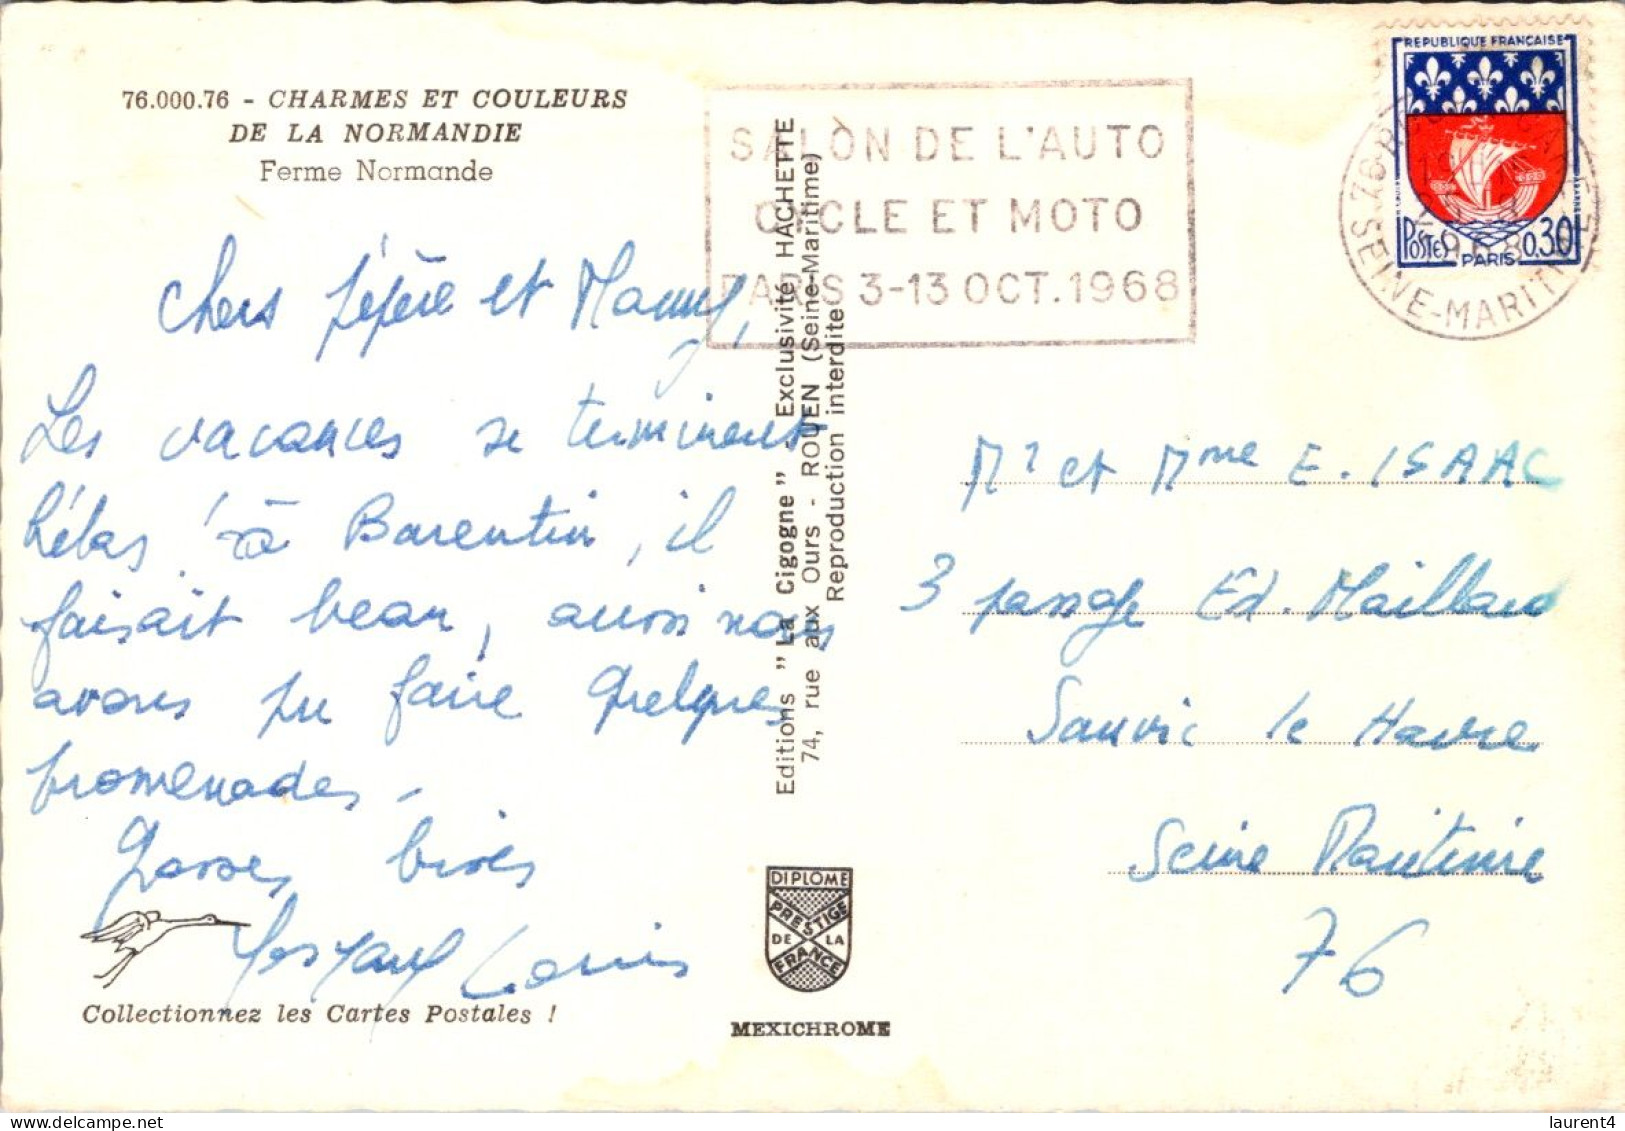 76.000.76 - CHARMES ET COULEURS
DE LA NORMANDIE
Ferme Normande
Chers pépère et Mamy,
Les vacances se terminent
hélas ! à Barentin, il
faisait beau, aussi nous
avons pu faire quelques
promenades -
Grosses bises
Louis
Collectionnez les Cartes Postales !
SALON DE L'AUTO
CYCLE ET MOTO
PARIS 3-13 OCT. 1968
Editions "La Cigogne" - Exclusivité HACHETTE
74, rue aux Ours - ROUEN (Seine-Maritime)
Reproduction interdite
DIPLOME
PRESTIGE
DE LA
FRANCE
MEXICHROME
REPUBLIQUE FRANÇAISE
POSTES 0.30
PARIS
76
SEINE-MARITIME
1968
Mr et Mme E. ISAAC
3 passage Ed. Maillard
Sanvic le Havre
Seine Maritime
76
laurent4